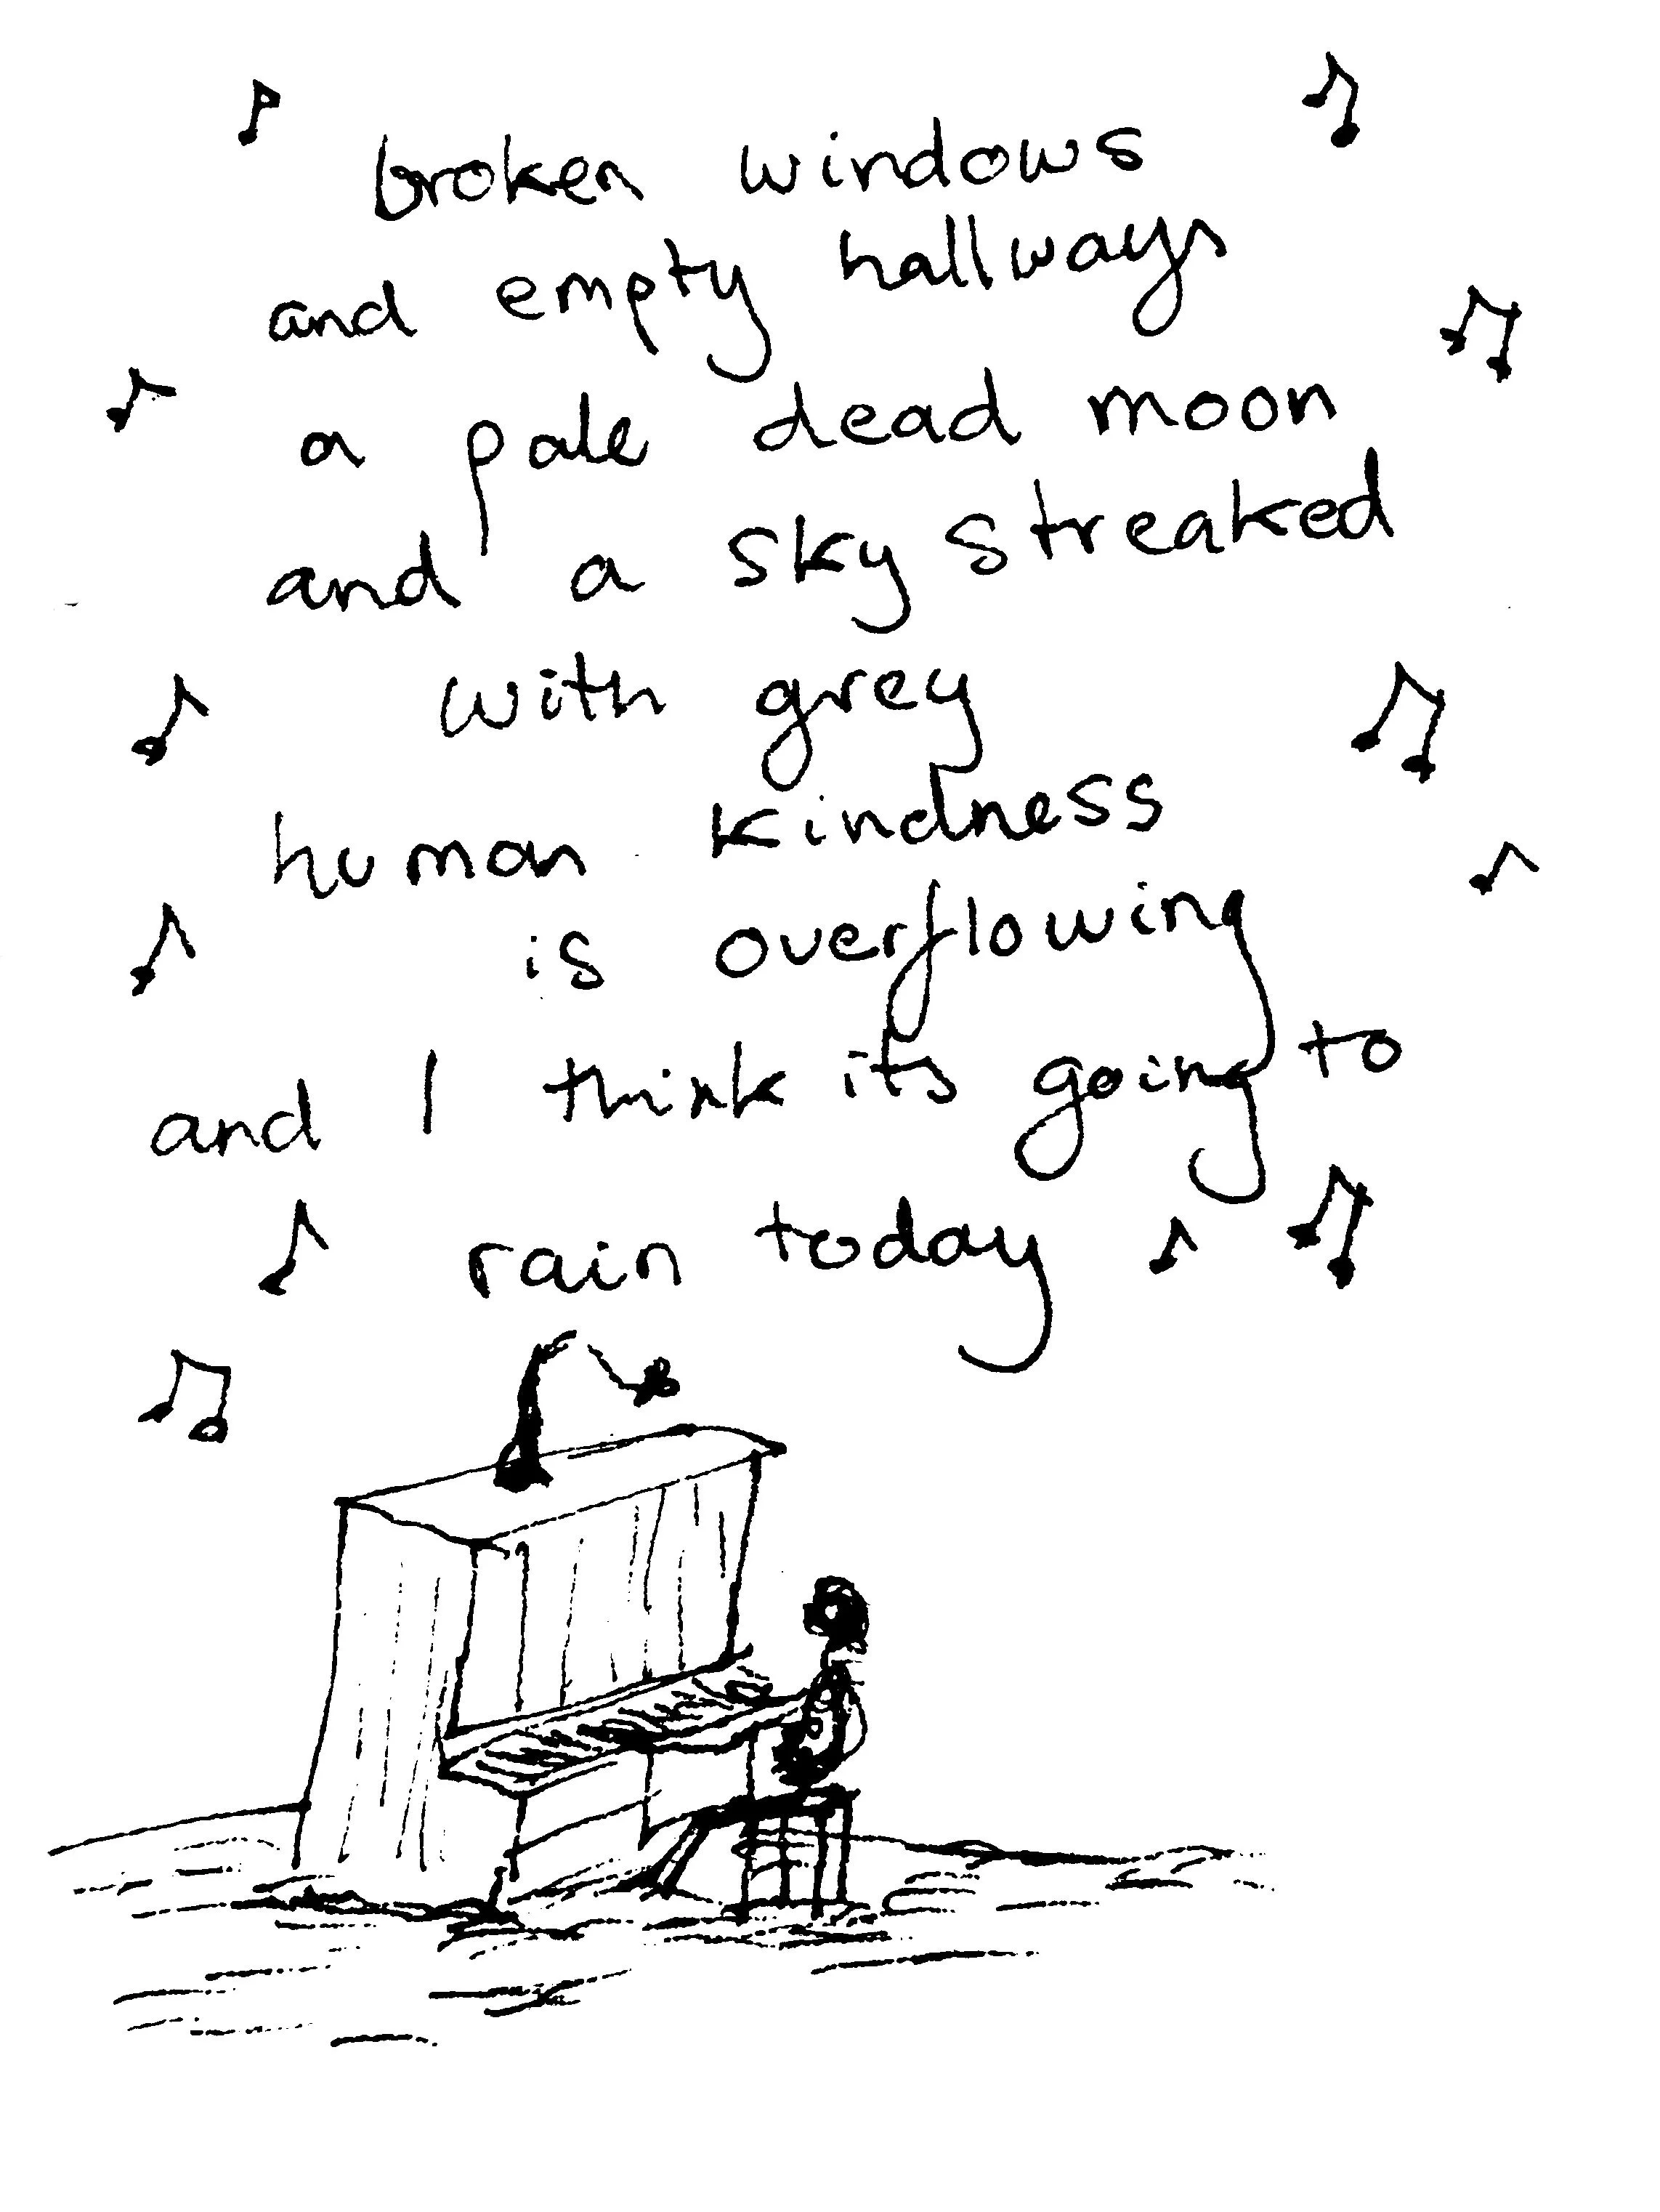 broken windows
and empty hallways
a pale dead moon
and a sky streaked
with grey
human kindness
is overflowing
and I think its going to
rain today